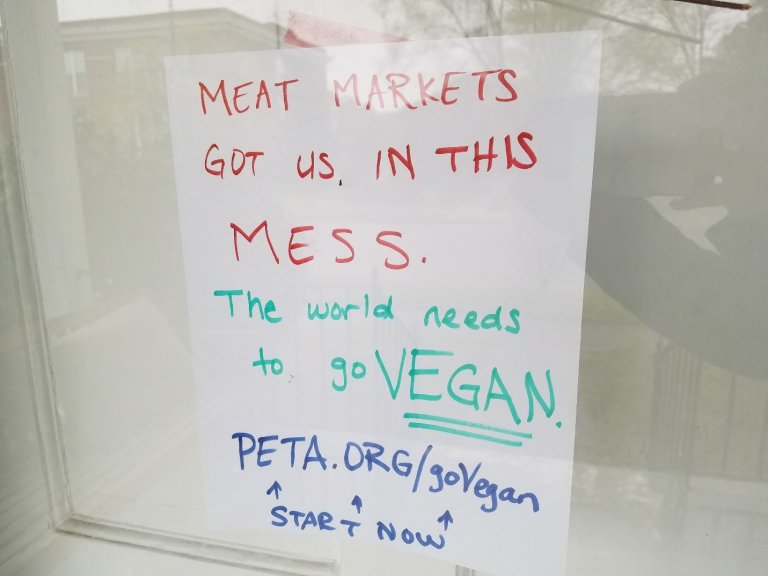 MEAT MARKETS
GOT US. IN THIS
MESS.
The world needs
to go VEGAN.
PETA.ORG/goVegan
START NOW